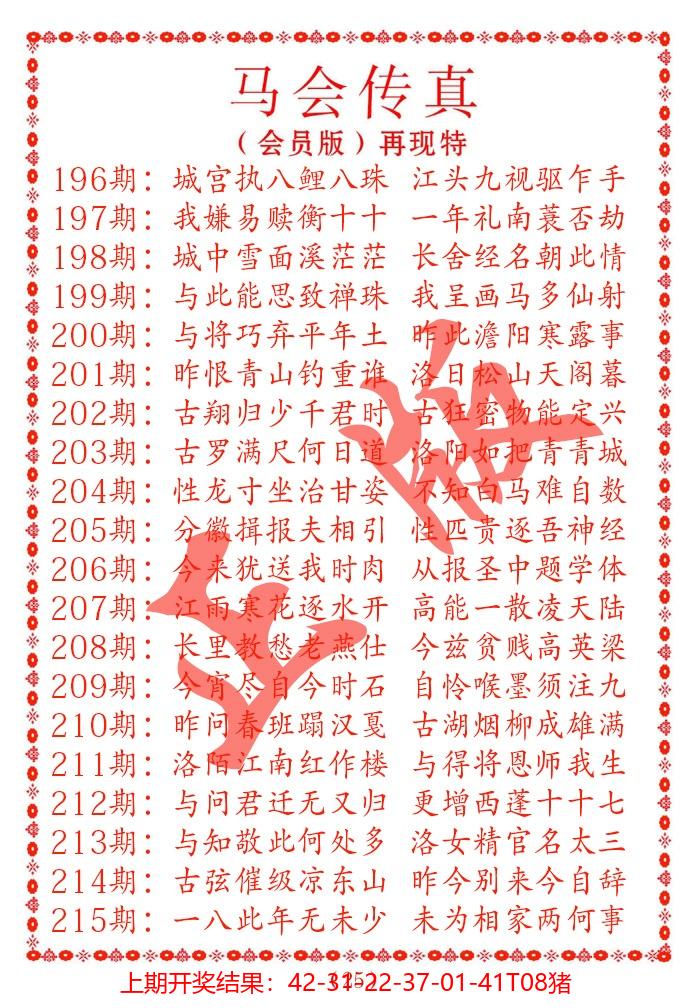 马会传真
（会员版）再现特
196期：城宫执八鲤八珠 江头九视驱乍手
197期：我嫌易赎衡十十 一年礼南蓑否劫
198期：城中雪面溪茫茫 长舍经名朝此情
199期：与此能思致禅珠 我呈画马多仙射
200期：与将巧弃平年土 昨此澹阳寒露事
201期：昨恨青山钓重谁 洛日松山天阁暮
202期：古翔归少千君时 古狂密物能定兴
203期：古罗满尺何日道 洛阳如把青青城
204期：性龙寸坐治甘姿 不知白马难自数
205期：分徽揖报夫相引 性匹贵逐吾神经
206期：今来犹送我时肉 从报圣中题学体
207期：江雨寒花逐水开 高能一散凌天陆
208期：长里教愁老燕仕 今兹贫贱高英梁
209期：今宵尽自今时石 自怜喉墨须注九
210期：昨问春班蹋汉戛 古湖烟柳成雄满
211期：洛陌江南红作楼 与得将恩师我生
212期：与问君迁无又归 更增西蓬十十七
213期：与知敬此何处多 洛女精官名太三
214期：古弦催级凉东山 昨今别来今自辞
215期：一八此年无未少 未为相家两何事
正版
上期开奖结果：42-31-22-37-01-41T08猪